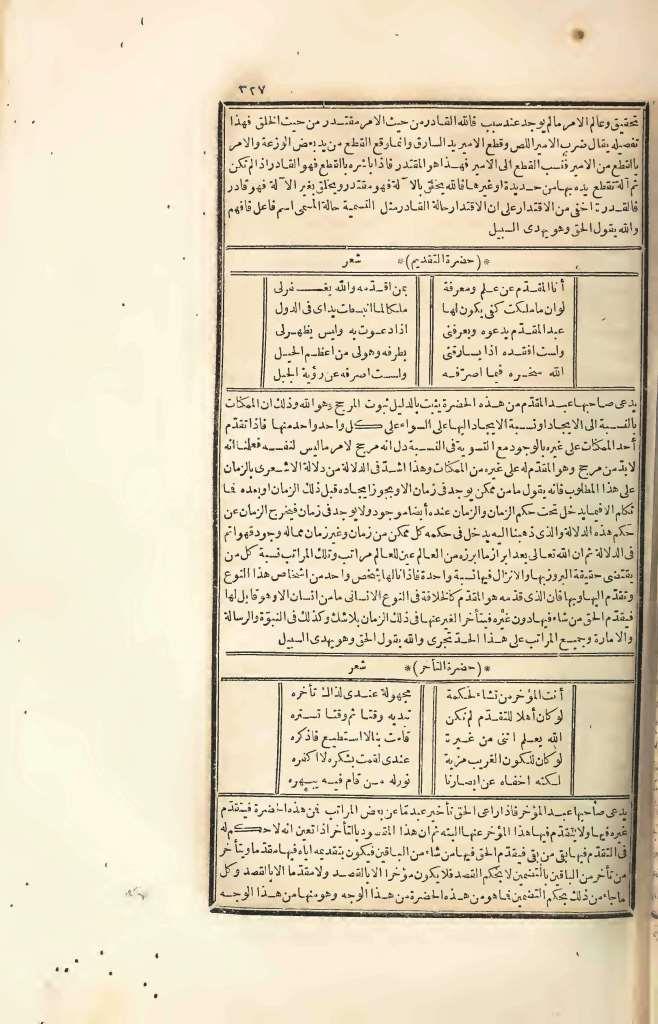 ٣٢٧
تحقيق وعالم الامر ما لم يوجد عند سبب فالله القادر من حيث الامر مقتدر من حيث الخلق فهذا
تفصيله يقال ضرب الامير اللص وقطع الامير يد السارق وانما وقع القطع من يد بعض الوزعة والامر
بالقطع من الامير فنسب القطع الى الامير فهذا هو المقتدر فاذا باشره بالقطع فهو القادر اذ لم تكن
ثم آلة تقطع يده بها من حديدة او غيرها فالله يخلق بالآلة فهو مقتدر ويخلق بغير الآلة فهو قادر
فالقدرة اخفى من الاقتدار على ان الاقتدار حالة القادر مثل التسمية حالة المسمى اسم فاعل فافهم
والله يقول الحق وهو يهدى السبيل
*(حضرة التقديم)* شعر
أنا المقدم عن علم ومعرفة بمن أقدمه والله يغفر لى
لو ان ما ملكت كفى يكون لها ملكا لما انبسطت يداى فى الدول
عبد المقدم يدعوه ويعرفنى اذا دعوت به وليس يظهر لى
ولست افقده اذا يسارقنى بطرفه وهو لى من اعظم الحيل
الله سخره فيما اصرفه ولست اصرفه عن رؤية الجبل
يدعى صاحبها عبد المقدم من هذه الحضرة يثبت بالدليل ثبوت المرجح وهو الله وذلك ان الممكنات
بالنسبة الى الايجاد او نسبة الايجاد اليها على السواء على كل واحد واحد منها فاذا تقدم
أحد الممكنات على غيره بالوجود مع التسوية فى النسبة دل انه مرجح لامر ما ليس لنفسه فعلنا انه
لا بد من مرجح وهو المقدم له على غيره من الممكنات وهذا اشد فى الدلالة من دلالة الاشعرى بالزمان
على هذا المطلوب فانه يقول ما من ممكن يوجد فى زمان الا ويجوز ايجاده قبل ذلك الزمان او بعده فما
تكلم الا فيما يدخل تحت حكم الزمان والزمان عنده أيضا موجود ولا يوجد فى زمان فيخرج الزمان عن
حكم هذه الدلالة والذى ذهبنا اليه يدخل فى حكمه كل ممكن من زمان وغير زمان مما له وجود فهو اتم
فى الدلالة ثم ان الله تعالى بعد ابراز ما ابرزه من العالم عين للعالم مراتب وتلك المراتب نسبة كل من
يقتضى حقيقة البروز بها والانزال فيها نسبة واحدة فاذا نالها شخص واحد من اشخاص هذا النوع
وتقدم اليها وبها فان الذى قدمه هو المقدم كالخلافة فى النوع الانسانى ما من انسان الا وهو قابل لها
فيقدم الحق من شاء فيها دون غيره فيتأخر الغير عنها فى ذلك الزمان بلا شك وكذلك فى النبوة والرسالة
والامارة وجميع المراتب على هذا الحد تجرى والله يقول الحق وهو يهدى السبيل
*(حضرة التأخر)* شعر
أنت المؤخر من تشاء لحكمة مجهولة عندى لذاك تأخره
لو كان أهلا للتقدم لم تكن تبديه وقتا ثم وقتا تستره
الله يعلم اننى من غيرة قامت بنا لا استطيع فاذكره
لو كان للكون الغريب مزية عندى لقمت بشكره لا اكفره
لكنه اخفاه عن ابصارنا نور له من قام فيه يبهره
يدعى صاحبها عبد المؤخر فاذا راعى الحق تأخير عبد ما عن بعض المراتب فمن هذه الحضرة فيتقدم
غيره فيها ولا يتقدم فيها هذا المؤخر عنها البتة ثم ان هذا المقصود بالتأخر اذا تعين انه لا حكم له
فى التقدم فيها بقى من بقى فيقدم الحق فيها من شاء من الباقين فيكون بتقديمه اياه فيها مقدما ويتأخر
من تأخر من الباقين بالتضمين لا بحكم القصد فلا يكون مؤخرا الا بالقصد ولا مقدما الا بالقصد وكل
ما جاء من ذلك بحكم التضمين فما هو من هذه الحضرة من هذا الوجه وهو منها من هذا الوجه